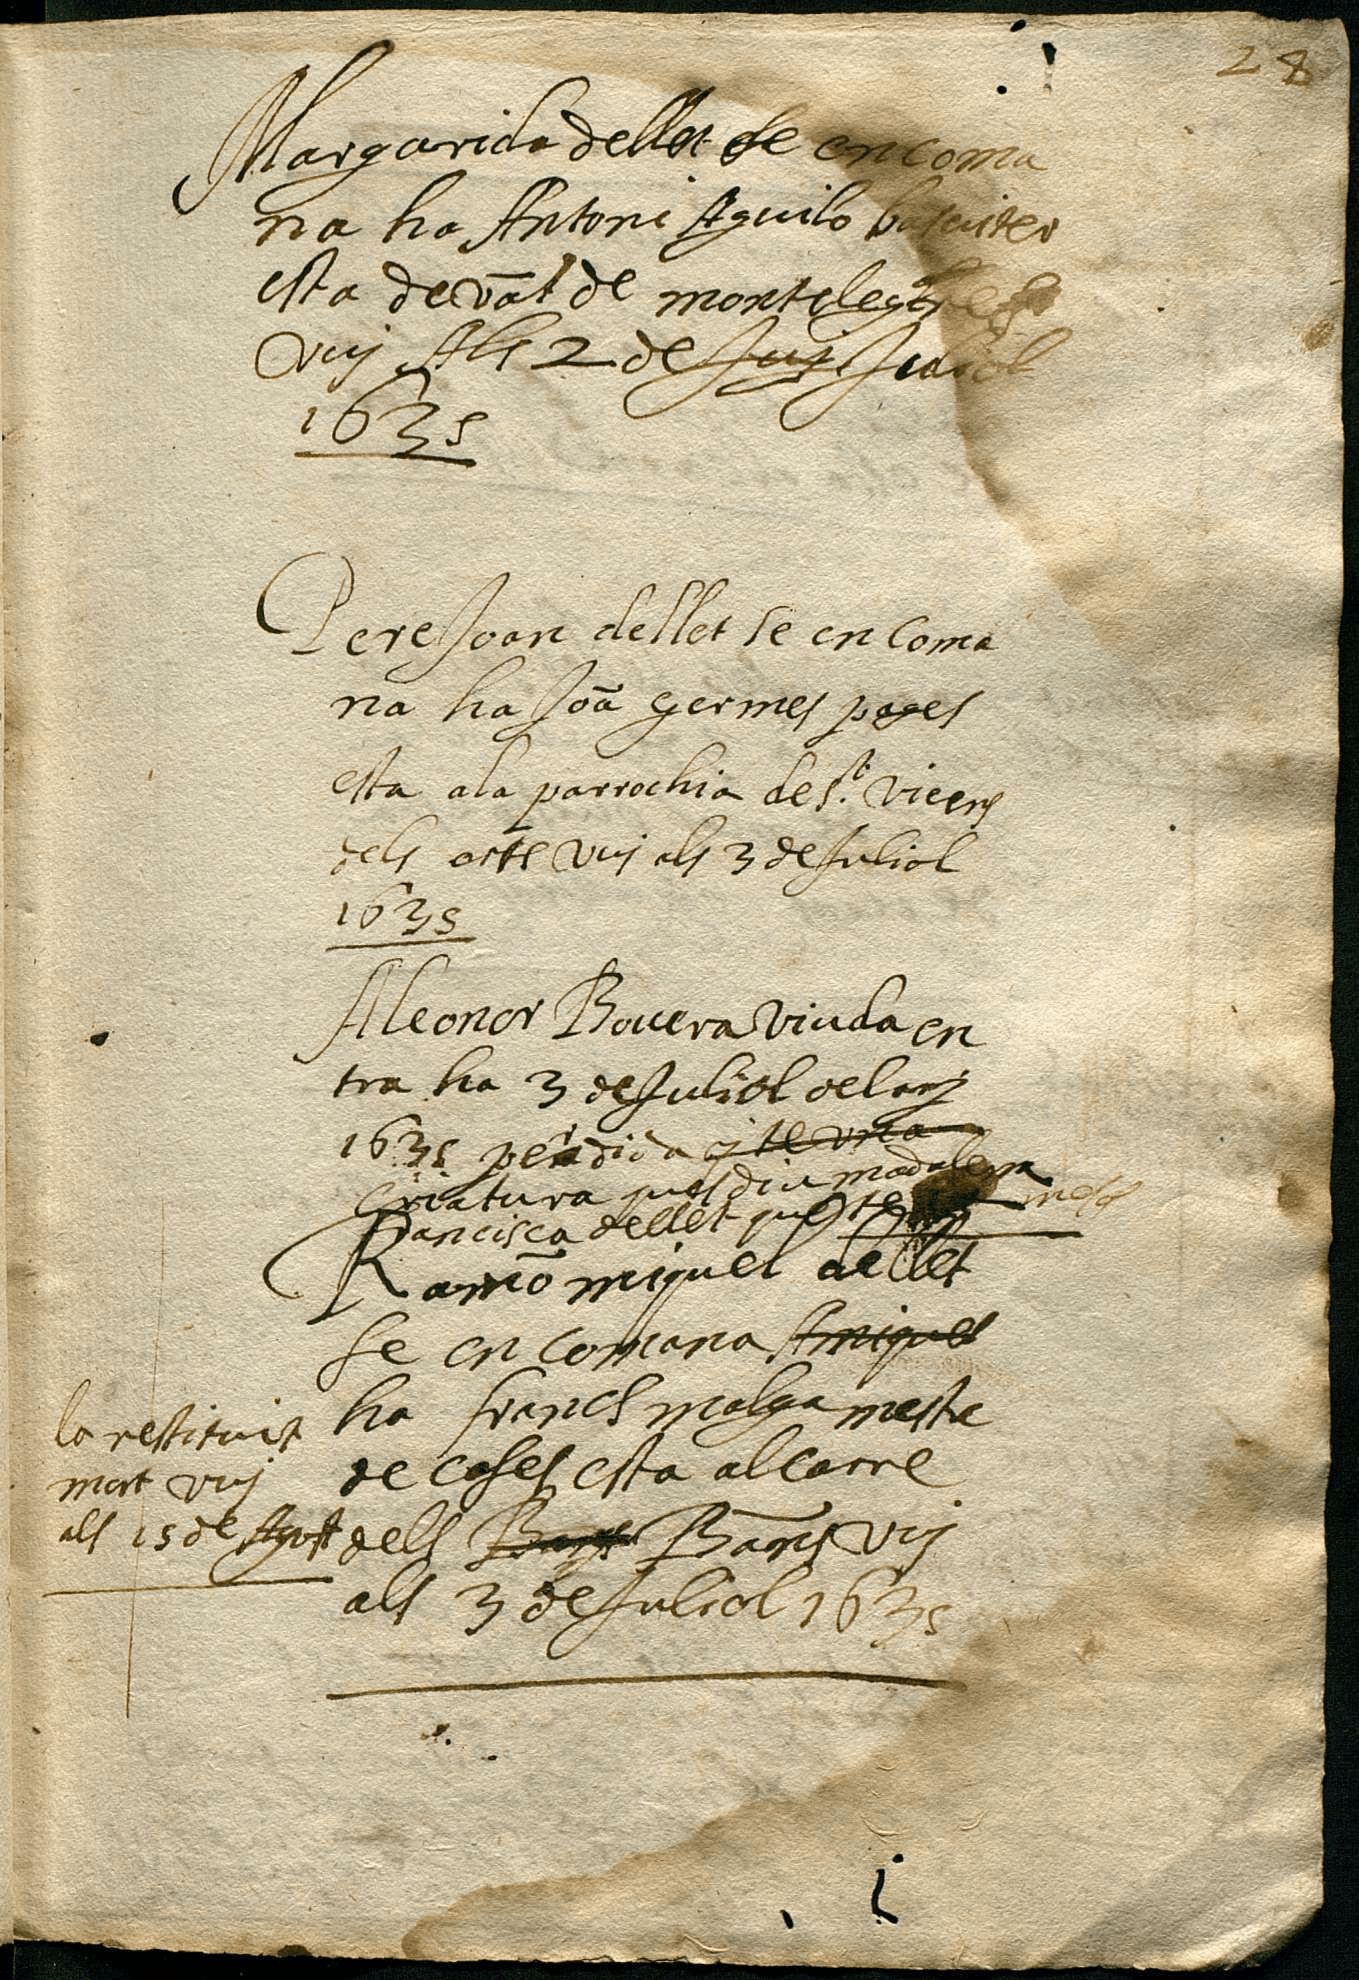 28
Margarida dellet se encoma
na ha Antoni Aguilo
esta devāt de montelegre
vuj Als 2 de Juj Juliol
1635
Pere Joan dellet se en coma
na ha Joā germes pages
esta ala parrochia de St. vicens
dels orts vuj als 3 de Juliol
1635
Aleonor Bovera viuda en
tra ha 3 de Juliol del anj
1635 per dida y te una
criatura ques diu madalena
francisca dellet que te mesos
Ramō miquel dellet
se en comana Amiquel
ha franch malga mestre
de cases esta al carre
dels Bays Bānys vuj
als 3 de Juliol 1635
lo restituit
mort vuj
als 15 de Agost